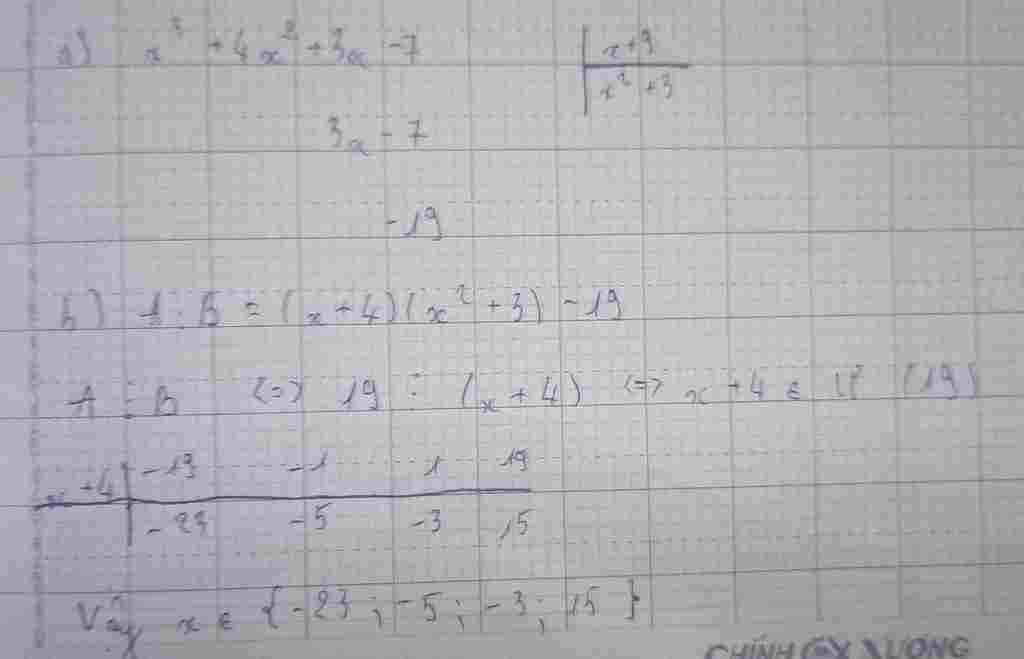 a) x³ + 4x² + 3x - 7 | x + 9
x² + 3
3x - 7
- 19
b) A : B = (x + 4)(x² + 3) - 19
A ⋮ B <=> 19 ⋮ (x + 4) <=> x + 4 ∈ Ư (19)
x + 4 | -19 -1 1 19
-23 -5 -3 15
Vậy x ∈ {-23 ; -5 ; -3 ; 15}